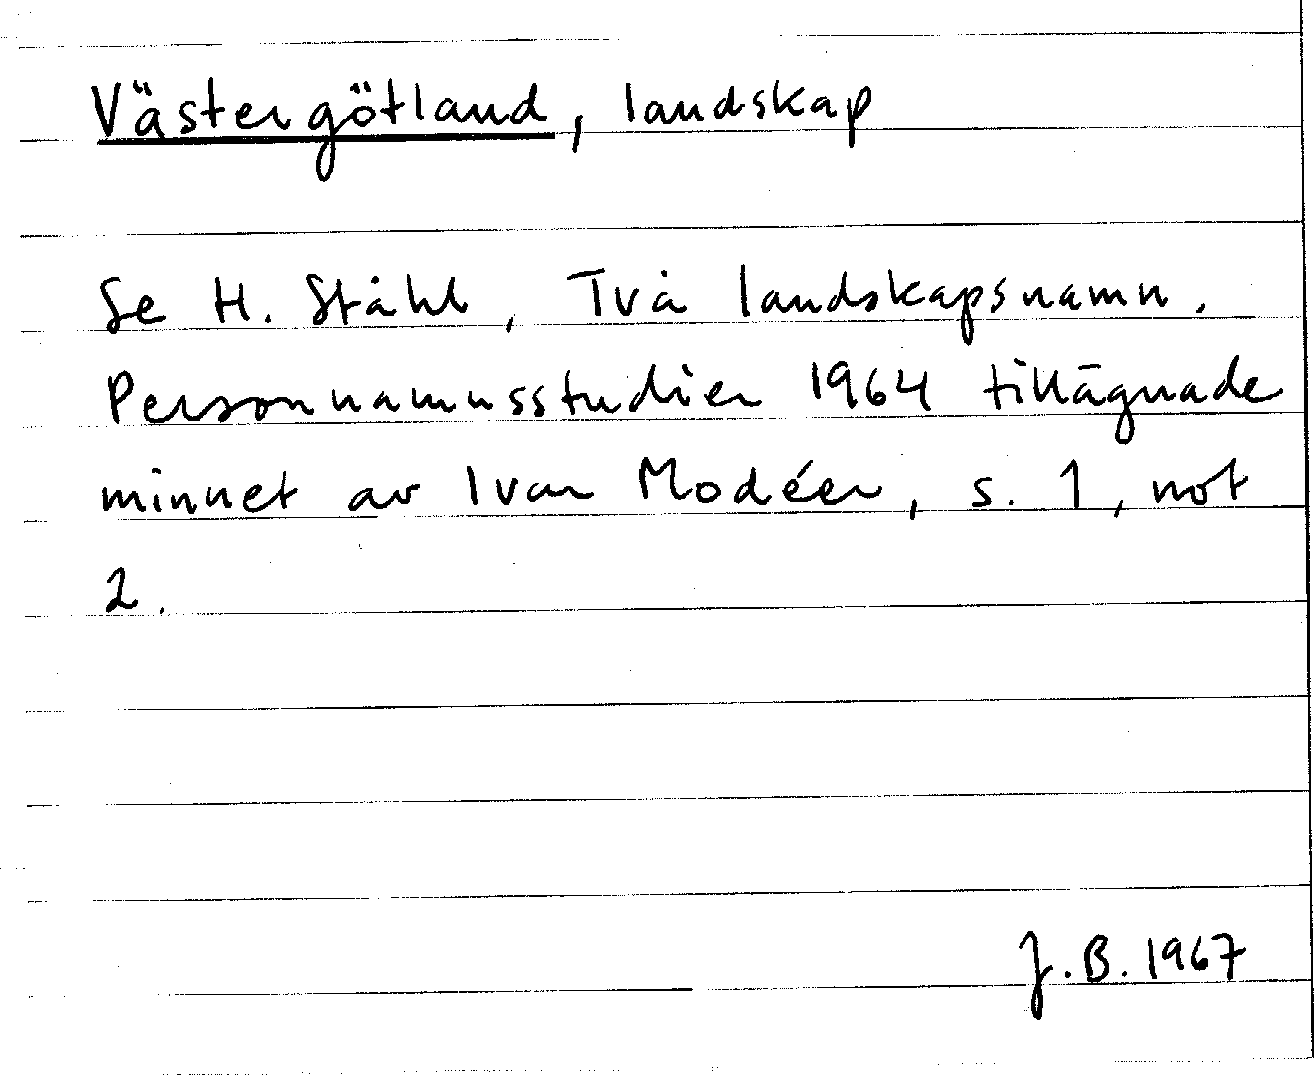 Västergötland, landskap
Se H. Ståhl, Två landskapsnamn.
Personnamnsstudier 1964 tillägnade
minnet av Ivar Modéer, s. 1, not
2.
J.B. 1967